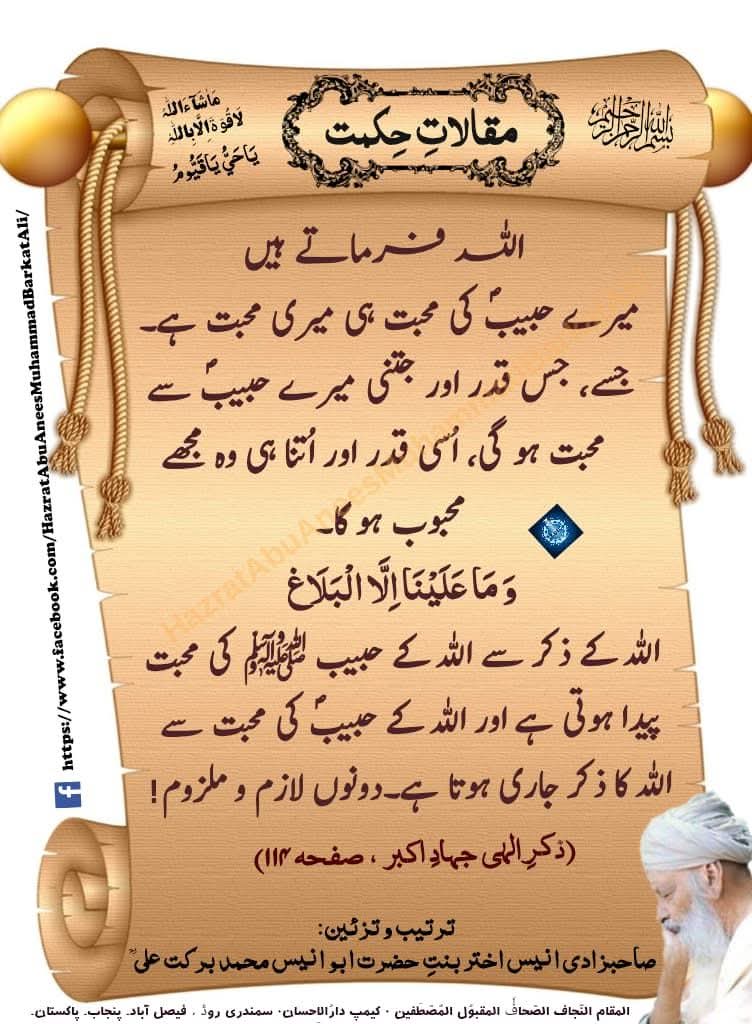 بسم اللہ الرحمن الرحیم
مقالاتِ حِکمت
مَاشَآءَاللہُ
لَاقُوَّۃَ اِلَّا بِاللہِ
یَاحَیُّ یَاقَیُّومُ
اللہ فرماتے ہیں
میرے حبیبؐ کی محبت ہی میری محبت ہے۔
جسے، جس قدر اور جتنی میرے حبیبؐ سے
محبت ہو گی، اُسی قدر اور اُتنا ہی وہ مجھے
محبوب ہو گا۔
وَمَا عَلَیْنَا اِلَّا الْبَلَاغ
اللہ کے ذکر سے اللہ کے حبیب ﷺ کی محبت
پیدا ہوتی ہے اور اللہ کے حبیبؐ کی محبت سے
اللہ کا ذکر جاری ہوتا ہے۔دونوں لازم و ملزوم!
(ذکرِ الٰہی جہادِ اکبر ، صفحہ ۱۱۴)
ترتیب و تزئین:
صاحبزادی انیس اختر بنتِ حضرت ابو انیس محمد برکت علیؒ
المقام النجاف الصحافُ المقبوُل المُصطَفین ۰ کیمپ دارُالاحسان۰ سمندری روڈ ، فیصل آباد۔ پنجاب۔ پاکستان۔
https://www.facebook.com/HazratAbuAneesMuhammadBarkatAli/